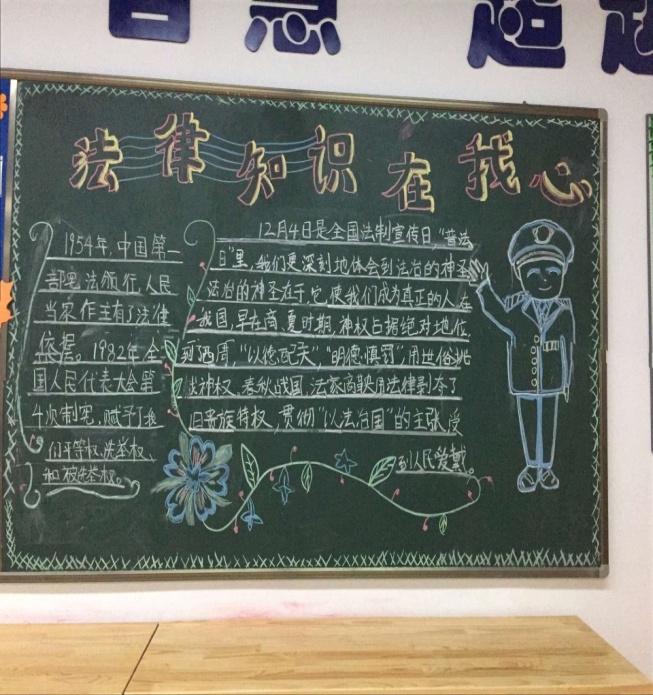 智慧 超越
法律知识在我心
1954年,中国第一
部宪法颁行,人民
当家作主有了法律
依据。1982年全
国人民代表大会第
4次制宪,赋予了我
们平等权、选举权、
和被选举权。
12月4日是全国法制宣传日,“普法
日”里,我们更深刻地体会到法治的神圣
法治的神圣在于,它使我们成为真正的人,在
我国,早在商、夏时期,神权占据绝对地位
到西周,“以德配天”,“明德慎罚”,用世俗挑
淡神权,春秋战国,法家商鞅用法律剥夺了
旧贵族特权,贯彻“以法治国”的主张,受
到人民爱戴。